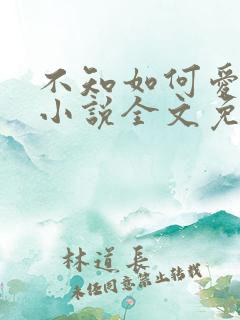 不知如何爱
小说全文免
林道長
未任同意禁止转载